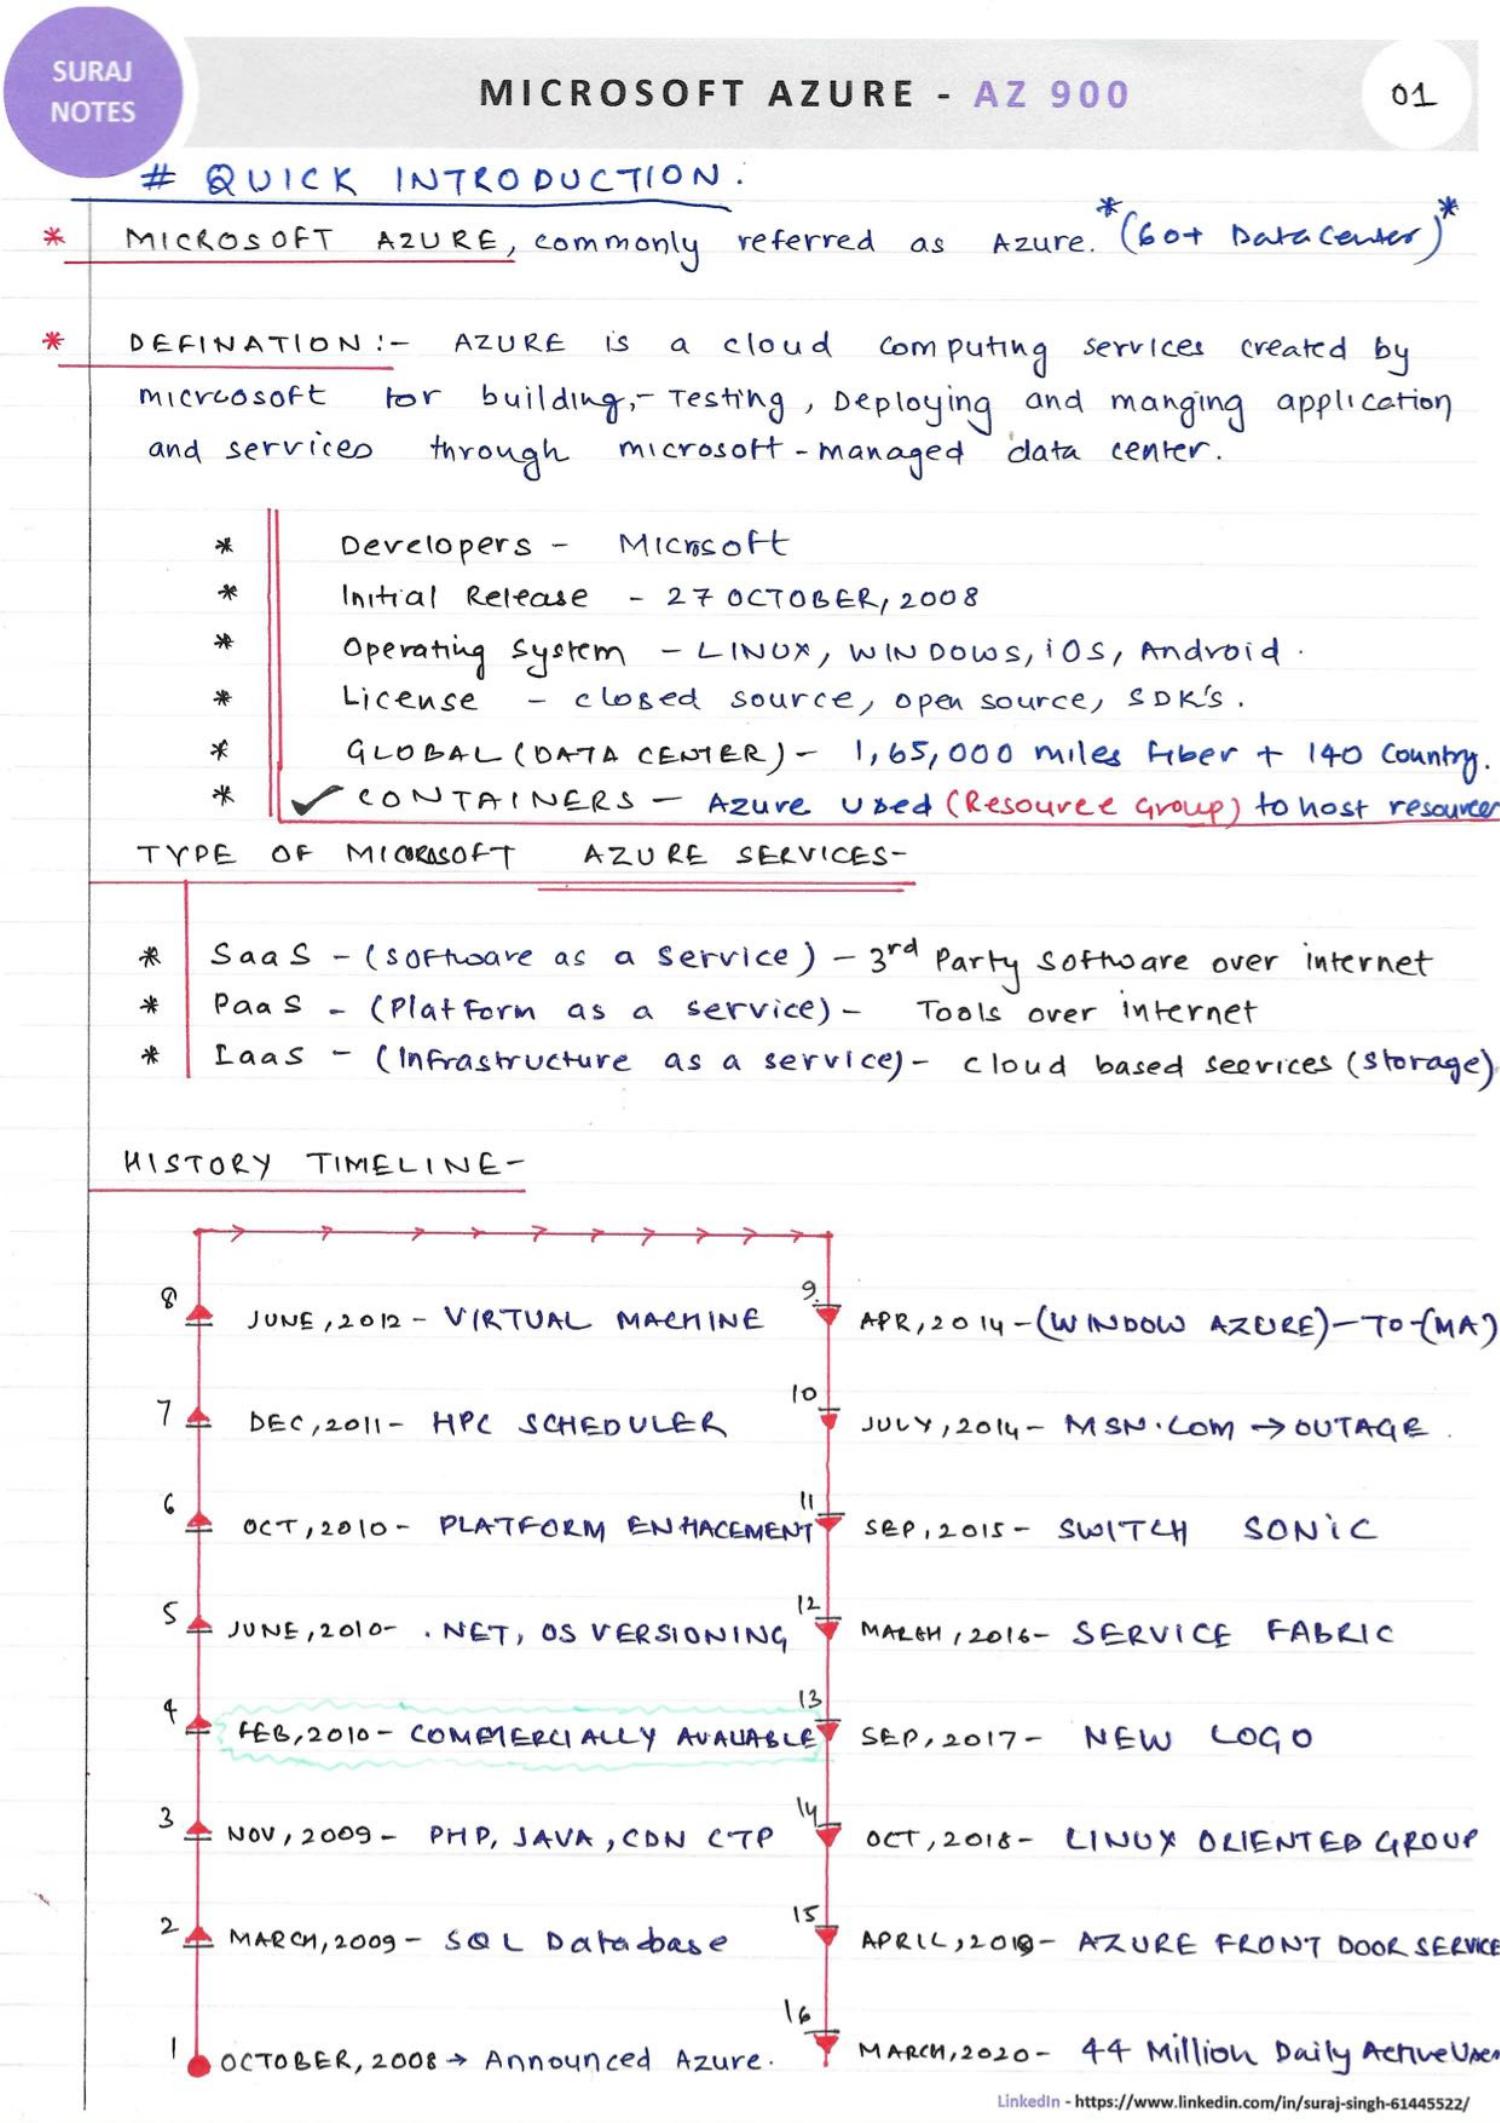 SURAJ
NOTES
MICROSOFT AZURE - AZ 900
01
# QUICK INTRODUCTION:
* MICROSOFT AZURE, commonly referred as Azure. *(60+ Data Center)*
* DEFINATION:- AZURE is a cloud computing services created by
micrcosoft for building,- Testing, Deploying and manging application
and services through microsoft-managed data center.
* Developers - Microsoft
* Initial Release - 27 OCTOBER, 2008
* Operating System - LINUX, WINDOWS, iOS, Android.
* License - closed source, open source, SDK's.
* GLOBAL (DATA CENTER) - 1,65,000 miles fiber + 140 Country.
* ✓ CONTAINERS - Azure used (Resource Group) to host resources
TYPE OF MICROSOFT AZURE SERVICES-
* SaaS - (Software as a Service) - 3rd Party Software over internet
* PaaS - (Platform as a service) - Tools over internet
* IaaS - (Infrastructure as a service) - cloud based seevices (storage)
HISTORY TIMELINE-
8 JUNE, 2012 - VIRTUAL MACHINE
7 DEC, 2011 - HPC SCHEDULER
6 OCT, 2010 - PLATFORM ENHACEMENT
5 JUNE, 2010 - .NET, OS VERSIONING
4 FEB, 2010 - COMMERCIALLY AVALIABLE
3 NOV, 2009 - PHP, JAVA, CDN CTP
2 MARCH, 2009 - SQL Database
1 OCTOBER, 2008 → Announced Azure.
9. APR, 2014 - (WINDOW AZURE) - TO - (MA)
10 JULY, 2014 - MSN.COM → OUTAGE.
11 SEP, 2015 - SWITCH SONiC
12 MARCH, 2016 - SERVICE FABRIC
13 SEP, 2017 - NEW LOGO
14 OCT, 2018 - LINUX ORIENTED GROUP
15 APRIL, - AZURE FRONT DOOR SERVICE
16 MARCH, 2020 - 44 Million Daily Active User
LinkedIn - https://www.linkedin.com/in/suraj-singh-61445522/